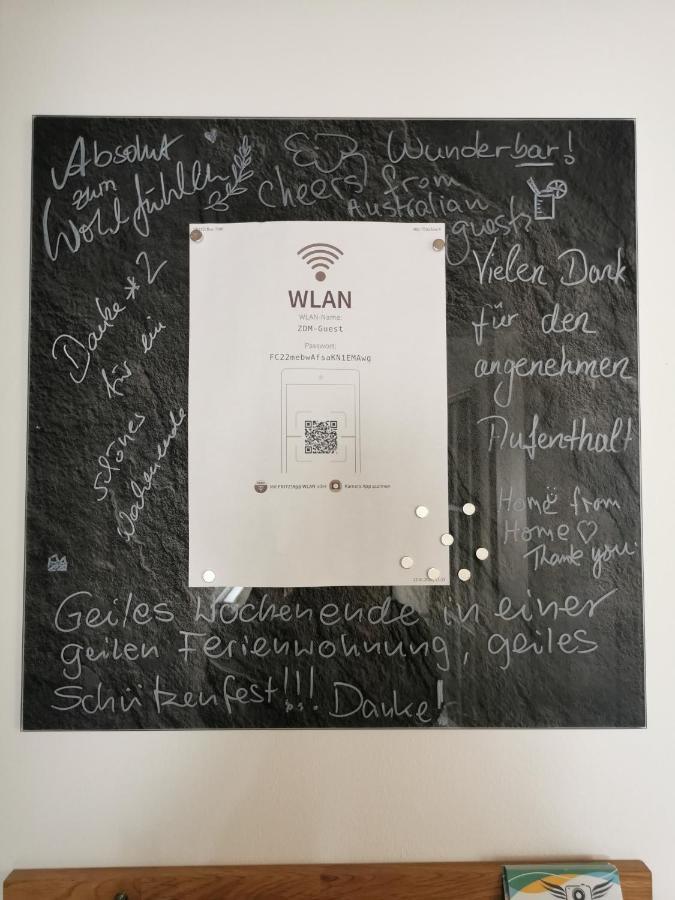 Absolut
zum
Wohlfühlen
Wunderbar!
Cheers from
Australian
guests
Danke * 2
für ein
schönes
Wochenende
Vielen Dank
für den
angenehmen
Aufenthalt
Home from
Home ♡
Thank you
WLAN
WLAN-Name:
ZDM-Guest
Passwort:
FC22mebwAfsaKN1EMAwg
Mit FRITZ!App WLAN oder Kamera App scannen
Geiles Wochenende in einer
geilen Ferienwohnung, geiles
Schützenfest!!! Danke!